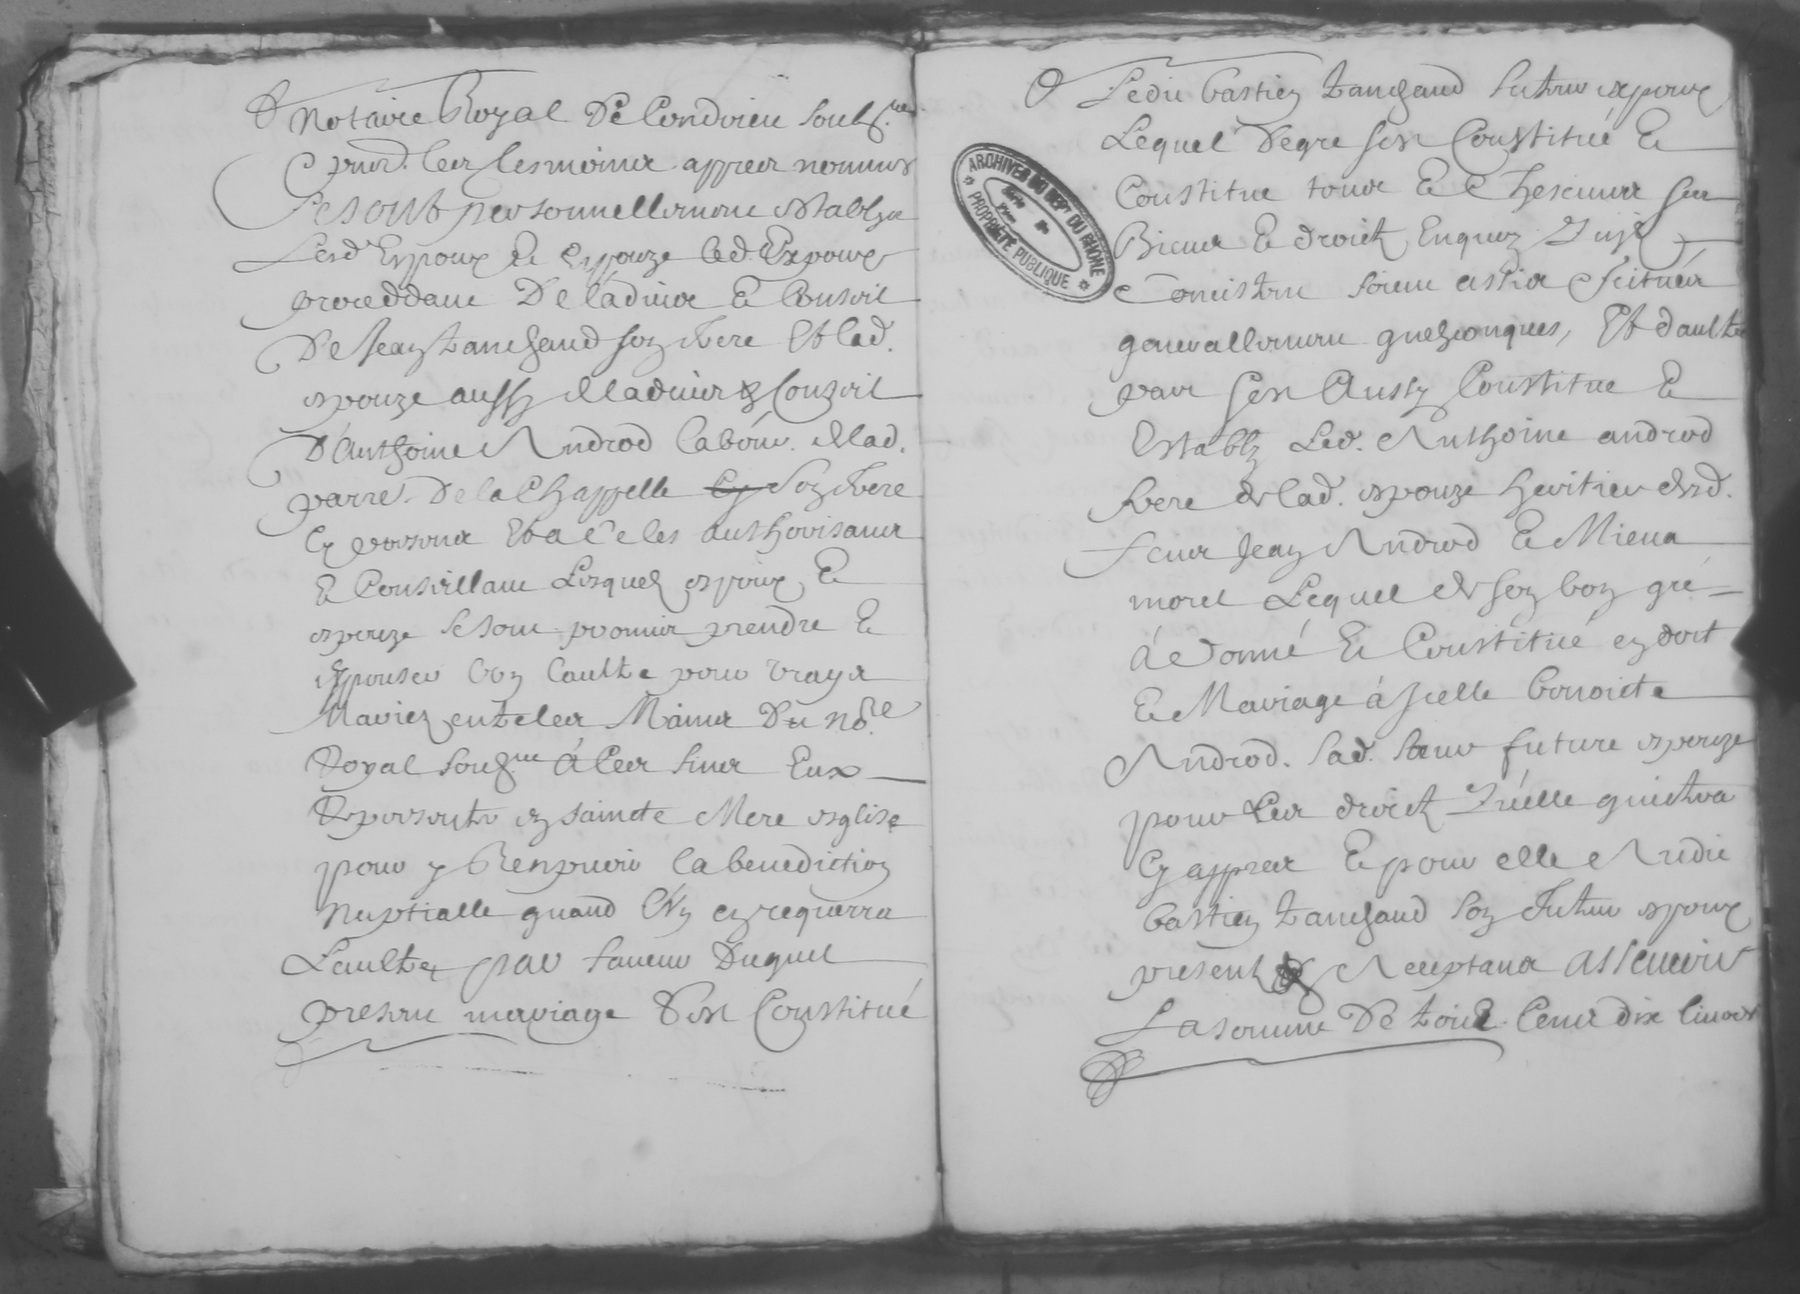 Notaire Royal De Condrieu soubsne
p̄nt. les tesmoins appres nommes
Se sont personnellement establys
Lesd Espoux et Espouze led. Expoux
proceddant De ladvis et Conseil
De Jean Tanchaud son frere Et lad.
espouze aussy de ladvis & Conseil
D'Anthoine Androd labour. de lad.
parre. De la Chappelle son frere
Cy presens Et a ce les authorisant
Et Conseillant Lesquels espoux et
espouze se sont promis prendre et
Espouser l'un l'aultre pour vrays
Maries entre les Mains du no.re
Royal soubsne à ces fins Eux
Representer en saincte Mere esglise
pour y Recepvoir la benediction
Nuptialle quand l'un en requerra
L'aultre par faveur Duquel
present mariage s'est Constitué
Ledit bastien Tanchaud futur espoux
Lequel de gre s'est Constitué Et
Constitue tous Et Chescuns ses
Biens Et droicts En quoy qu'ilz
Concistent soient assis Scitues
generallement quelconques, Et d'aultre
part s'est Aussy Constitue Et
Establ Led. Anthoine androd
frere de lad. espouze heritier dud.
feu Jean Androd Et Miena
morel Lequel de son bon gré
à donné Et Constitué en dot
Et Mariage à Icelle benoicte
Androd. sad. sœur future espouze
pour Les droicts qu'elle quictra
Cy appres Et pour elle Audit
bastien Tanchaud son futur espoux
present & Acceptant assçavoir
La somme De trois Cens dix livres
ARCHIVES DU DEPT DU RHONE
* PROPRIÉTÉ PUBLIQUE *